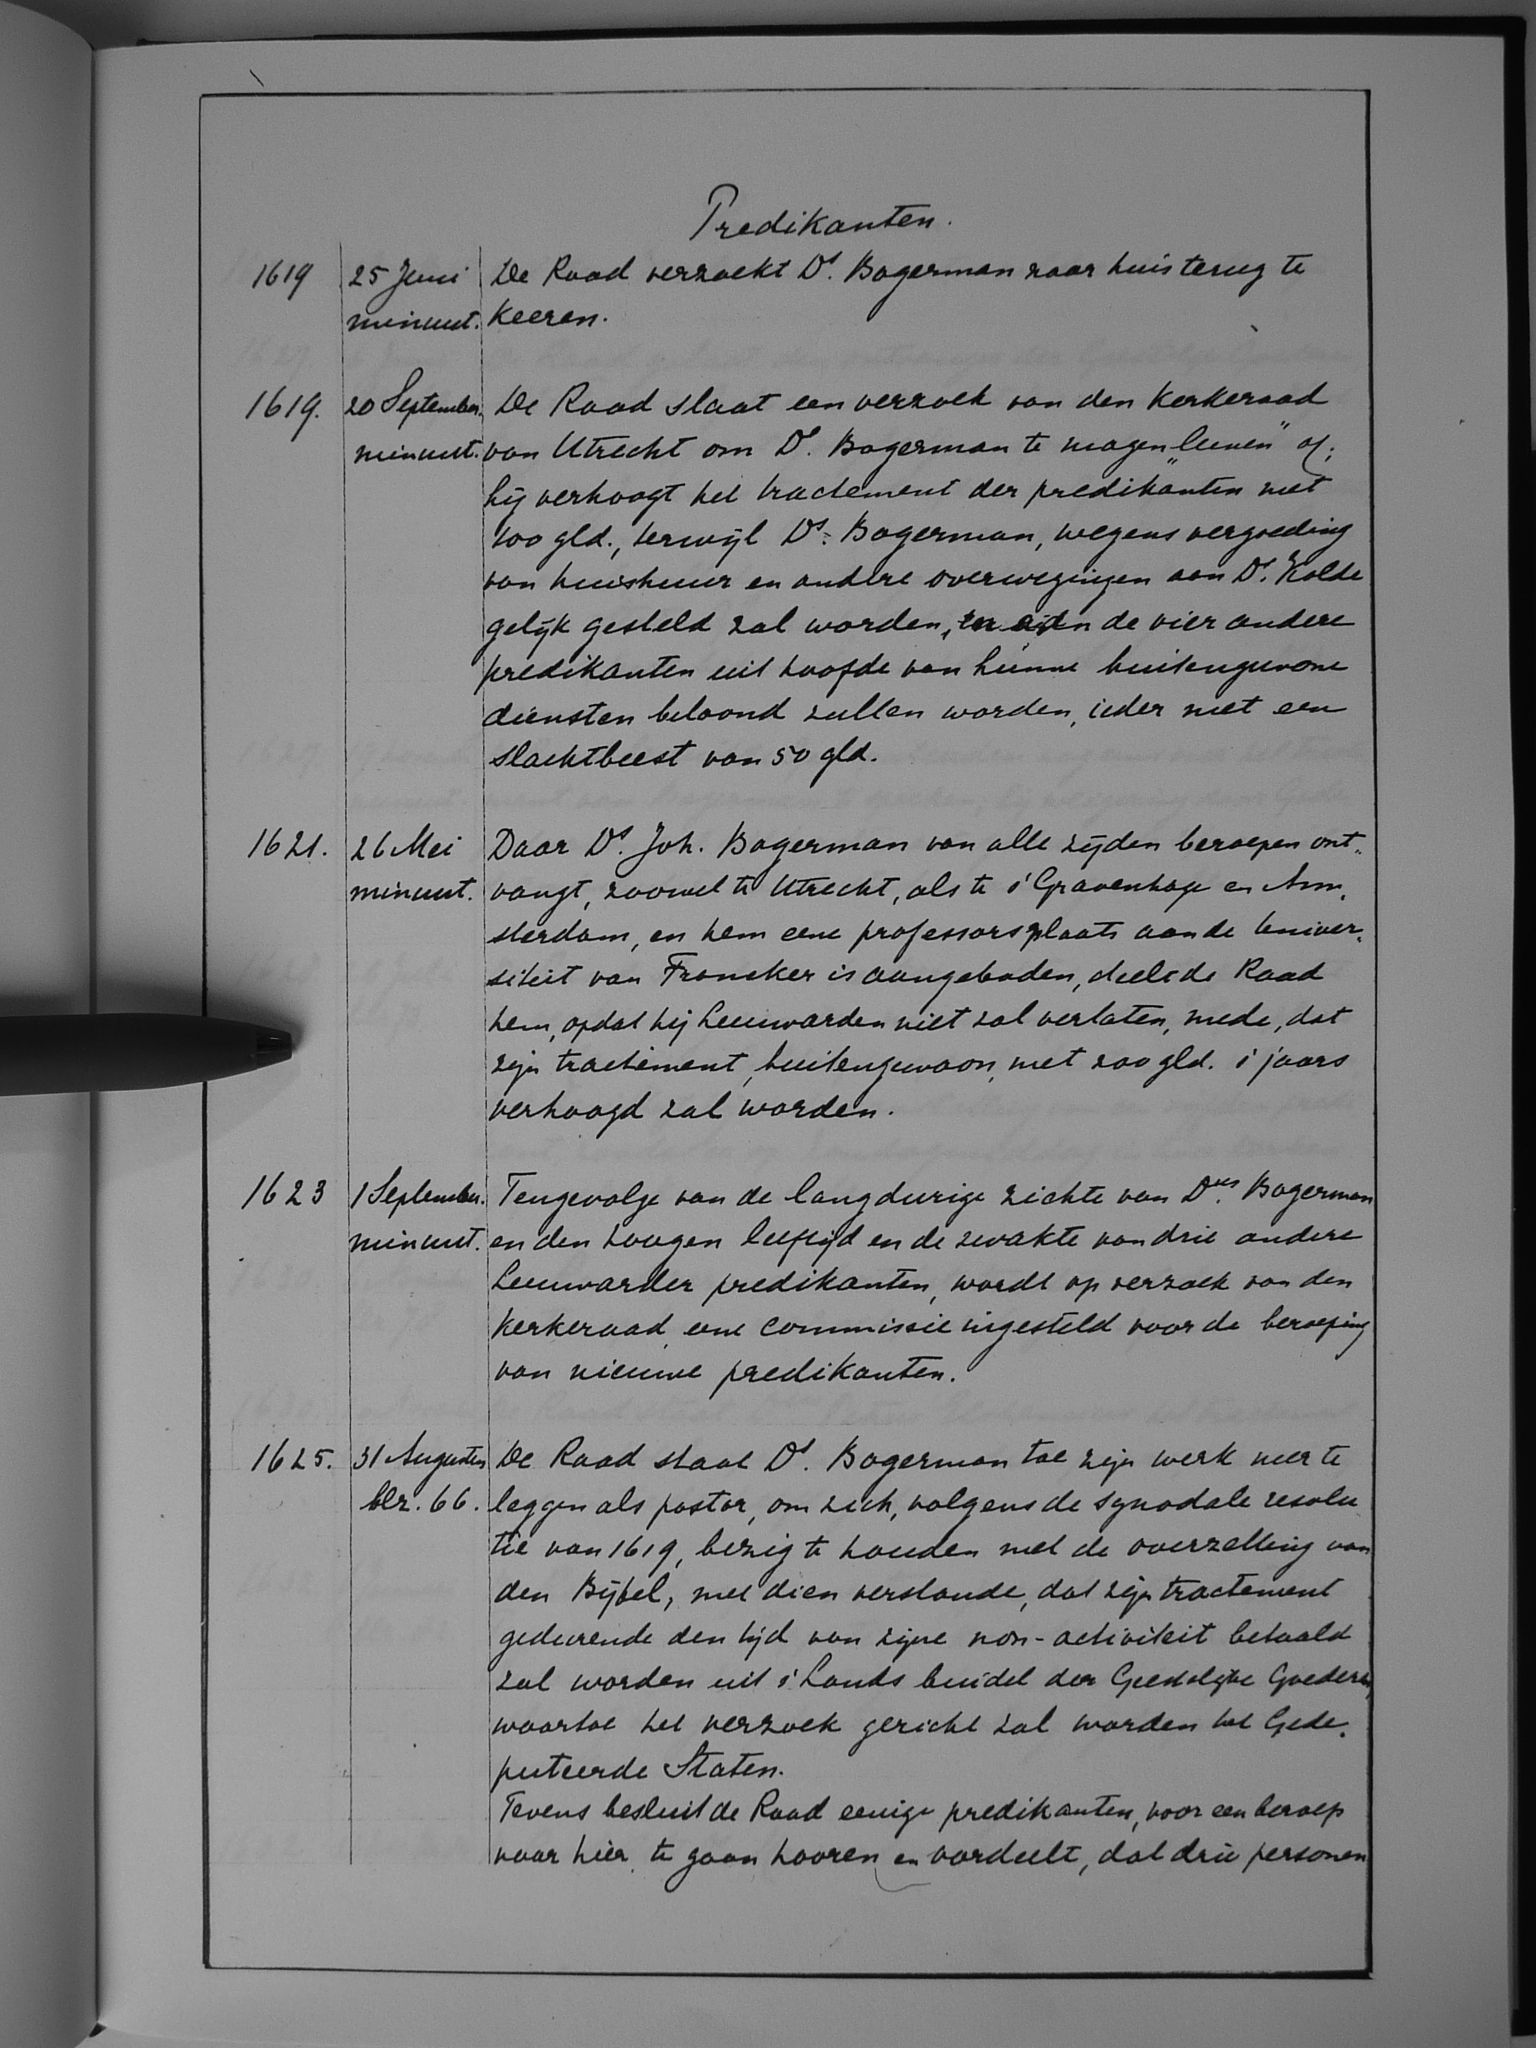 Predikanten.
1619 25 Juni De Raad verzoekt Ds. Bogerman naar huis terug te
minuut. keeren.
1619. 20 September. De Raad slaat een verzoek van den Kerkeraad
minuut. van Utrecht om Ds. Bogerman te mogen „leenen" af;
hij verhoogt het tractement der predikanten met
100 gld., terwijl Ds. Bogerman, wegens vergoeding
van huishuur en andere overwegingen aan Ds. Kolde
gelijk gesteld zal worden, en de vier andere
predikanten uit hoofde van hunne buitengewone
diensten beloond zullen worden, ieder met een
slachtbeest van 50 gld.
1621. 26 Mei Daar Ds. Joh. Bogerman van alle zijden beroepen ont-
minuut. vangt, zoowel te Utrecht, als te s' Gravenhage en Am-
sterdam, en hem eene professorsplaats aan de Univer-
siteit van Franeker is aangeboden, deelt de Raad
hem, opdat hij Leeuwarden niet zal verlaten, mede, dat
zijn tractement, buitengewoon, met 200 gld. s' jaars
verhoogd zal worden.
1623 1 September. Tengevolge van de langdurige ziekte van Dus. Bogerman
minuut. en den hoogen leeftijd en de zwakte van drie andere
Leeuwarder predikanten, wordt op verzoek van den
Kerkeraad eene commissie ingesteld voor de beroeping
van nieuwe predikanten.
1625. 31 Augustus De Raad staat Ds. Bogerman toe zijn werk neer te
blz. 66. leggen als pastor, om zich, volgens de synodale resolu
tie van 1619, bezig te houden met de overzetting van
den Bijbel, met dien verstande, dat zijn tractement
gedurende den tijd van zijne non-activiteit betaald
zal worden uit s' Lands buidel der Geestelijke Goederen,
waartoe het verzoek gericht zal worden tot Gede-
puteerde Staten.
Tevens besluit de Raad eenige predikanten, voor een beroep
naar hier, te gaan hooren en oordeelt, dat drie personen